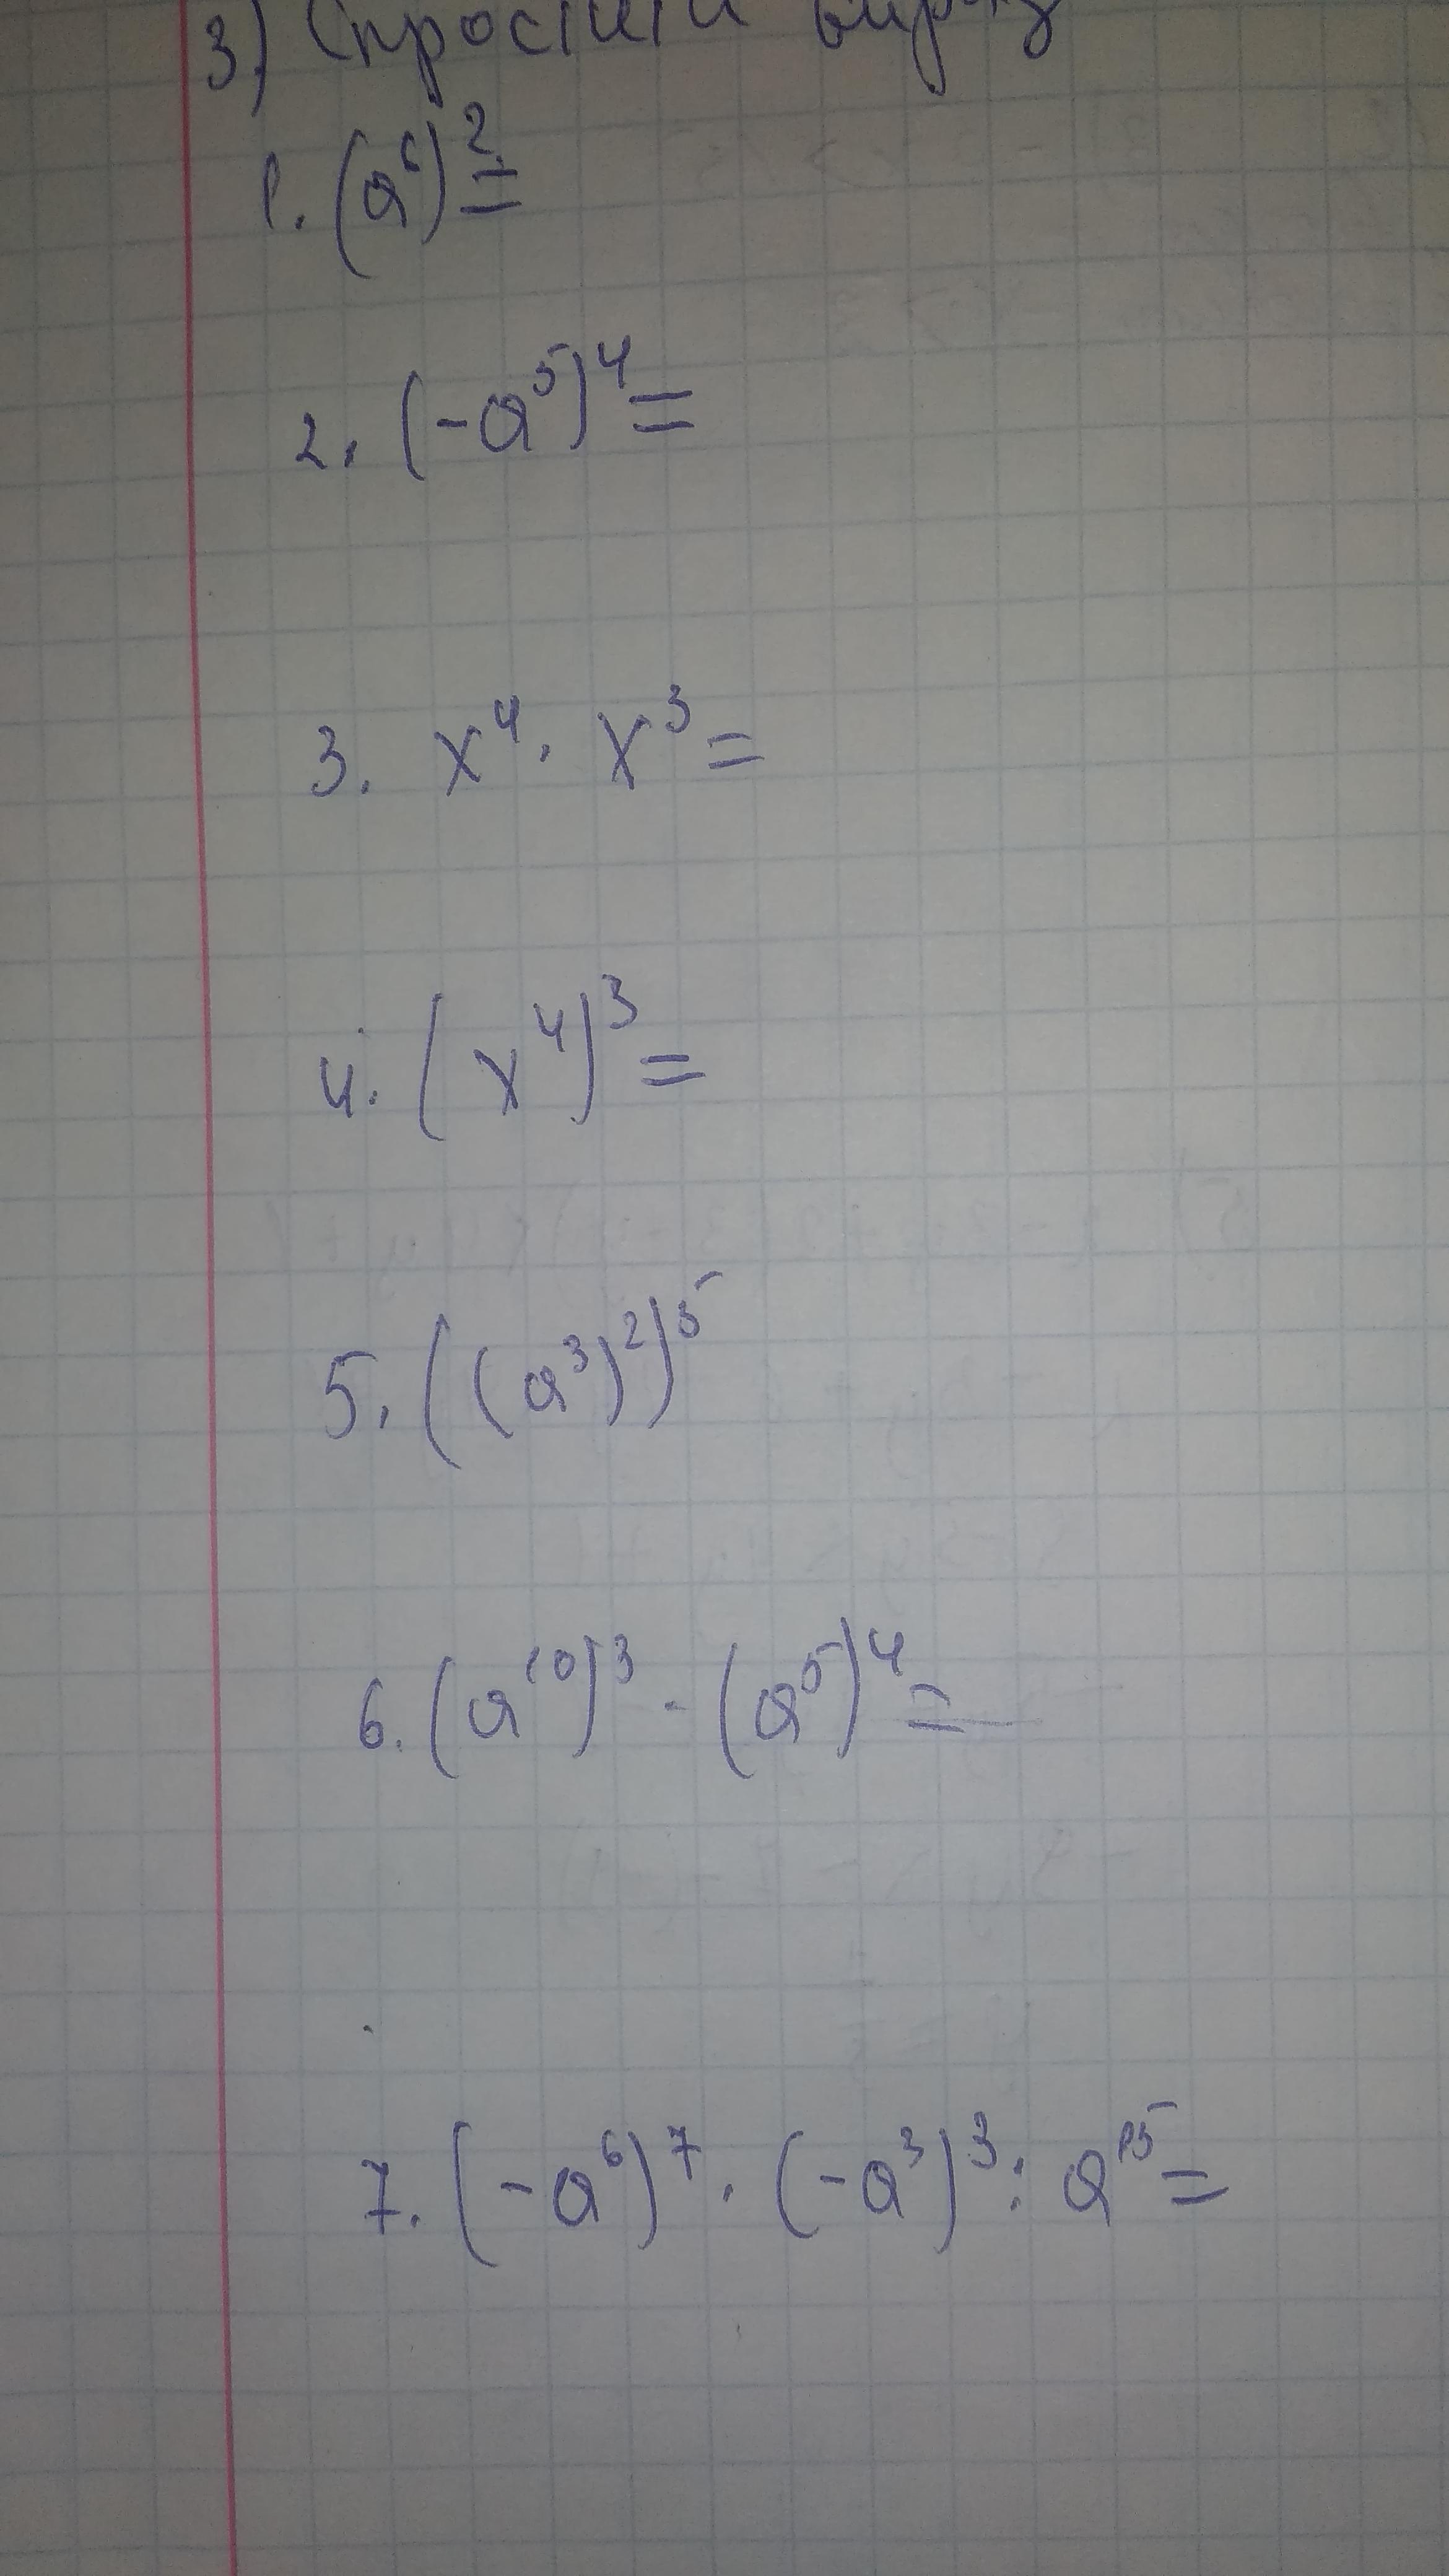 3) Спростити вираз
1. (a⁶)² =
2. (-a⁵)⁴ =
3. x⁴ · x³ =
4. (x⁴)³ =
5. ((a³)²)⁵
6. (a¹⁰)³ · (a⁵)⁴ =
7. (-a⁶)⁷ · (-a³)³ : a¹⁵ =